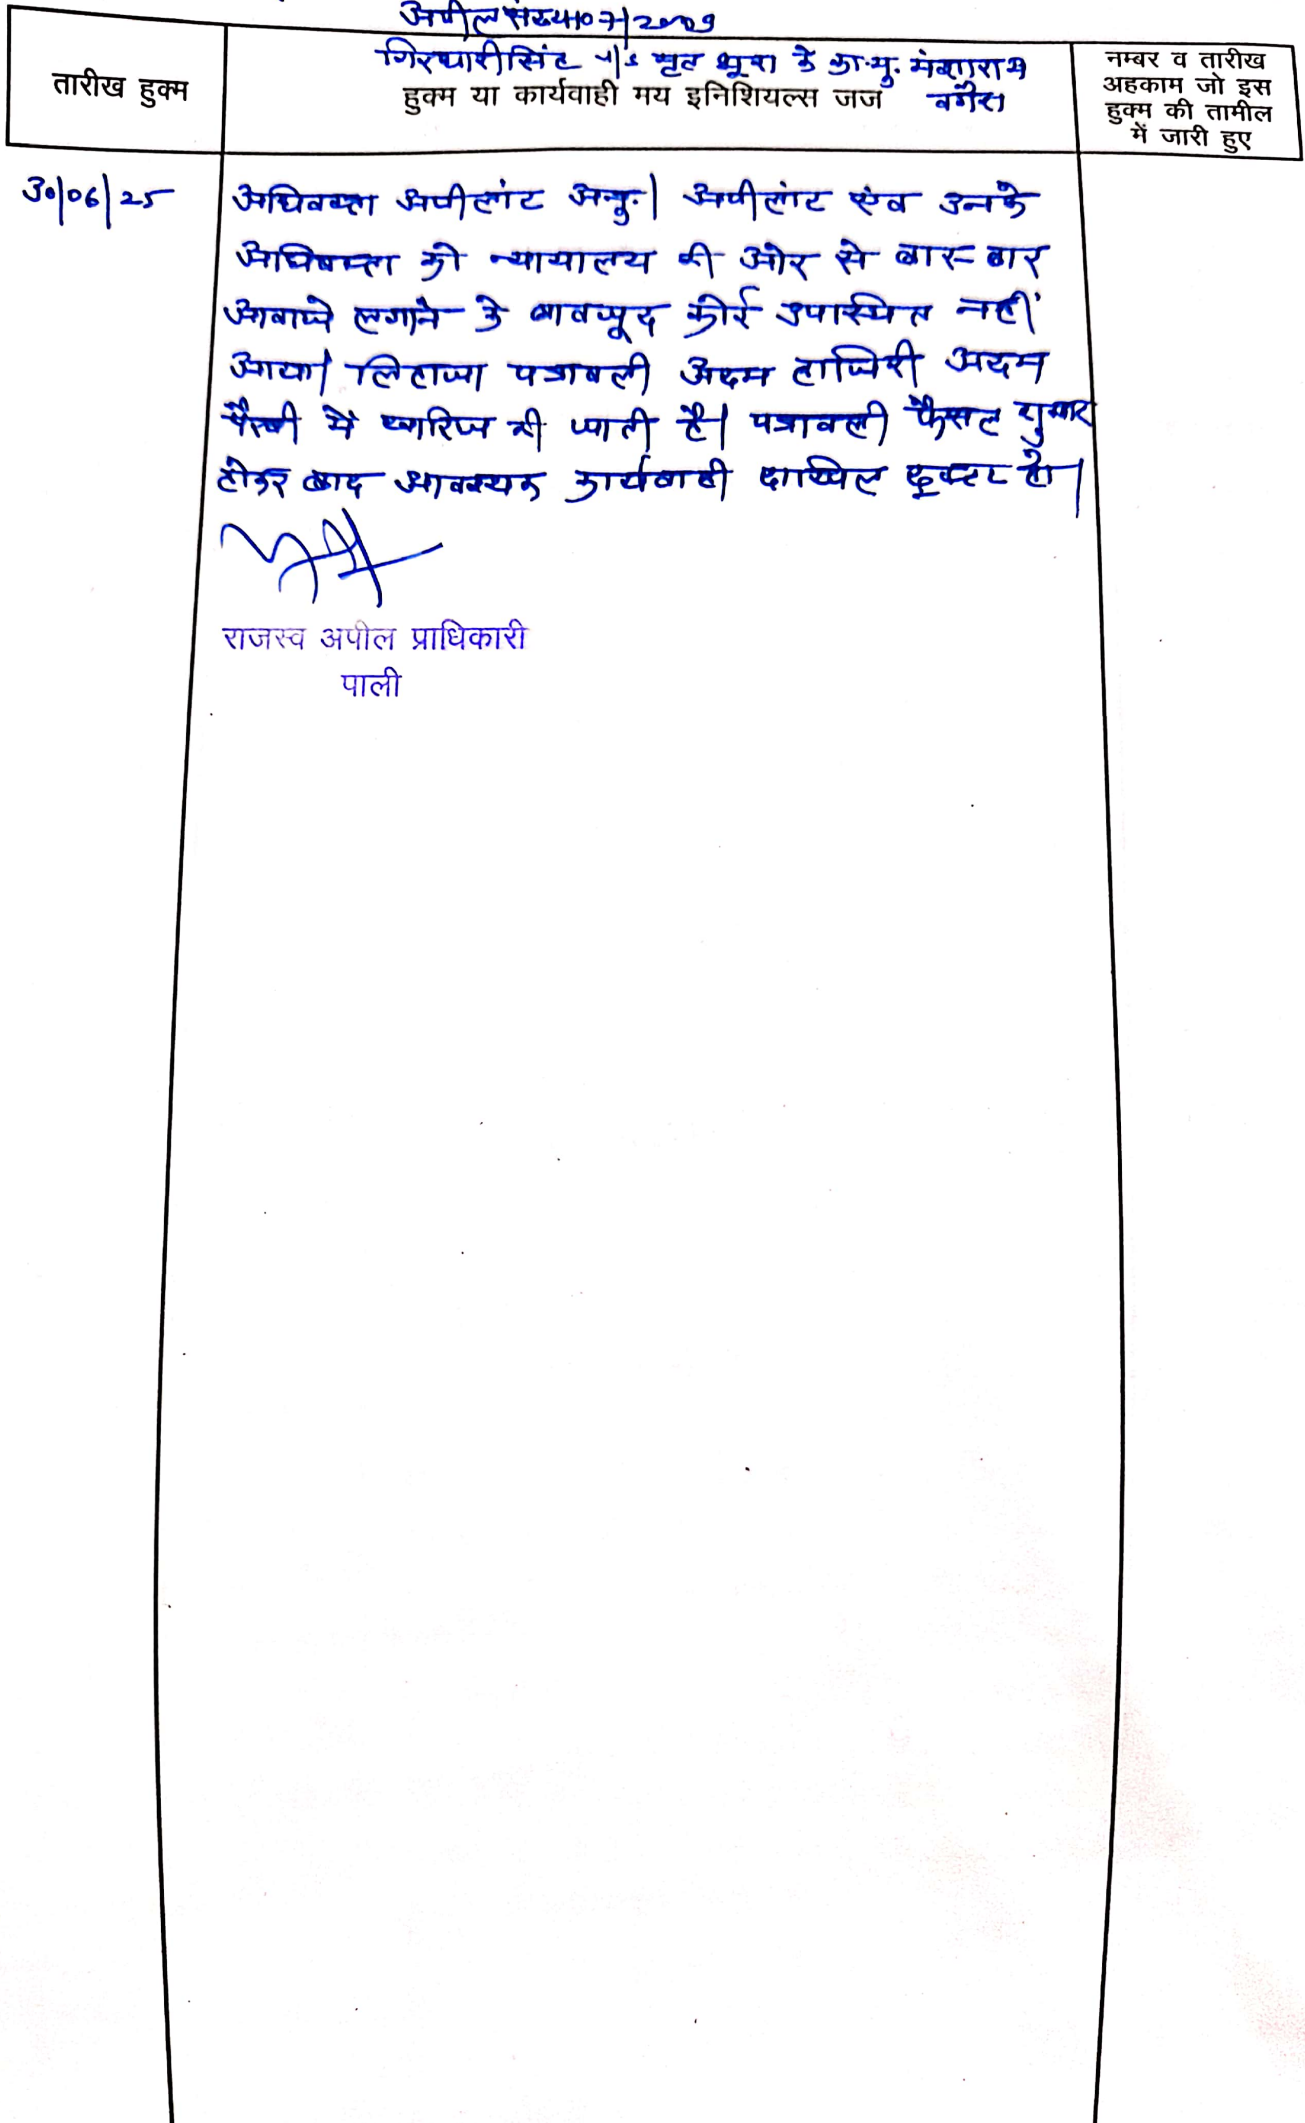 अपील संख्या 07/2009
गिरधारीसिंह v/s मृत भूरा के का.मु. मंशाराम
वगैरा
तारीख हुक्म
हुक्म या कार्यवाही मय इनिशियल्स जज
नम्बर व तारीख
अहकाम जो इस
हुक्म की तामील
में जारी हुए
30/06/25
अधिवक्ता अपीलांट अनु.। अपीलांट एंव उनके
अधिवक्ता को न्यायालय की ओर से बार-बार
आवाजे लगाने के बावजूद कोई उपस्थित नहीं
आया। लिहाजा पत्रावली अदम हाजिरी अदम
पैरवी में खारिज की जाती है। पत्रावली फैसल शुमार
होकर बाद आवश्यक कार्यवाही दाखिल दफ्तर हो।
राजस्व अपील प्राधिकारी
पाली